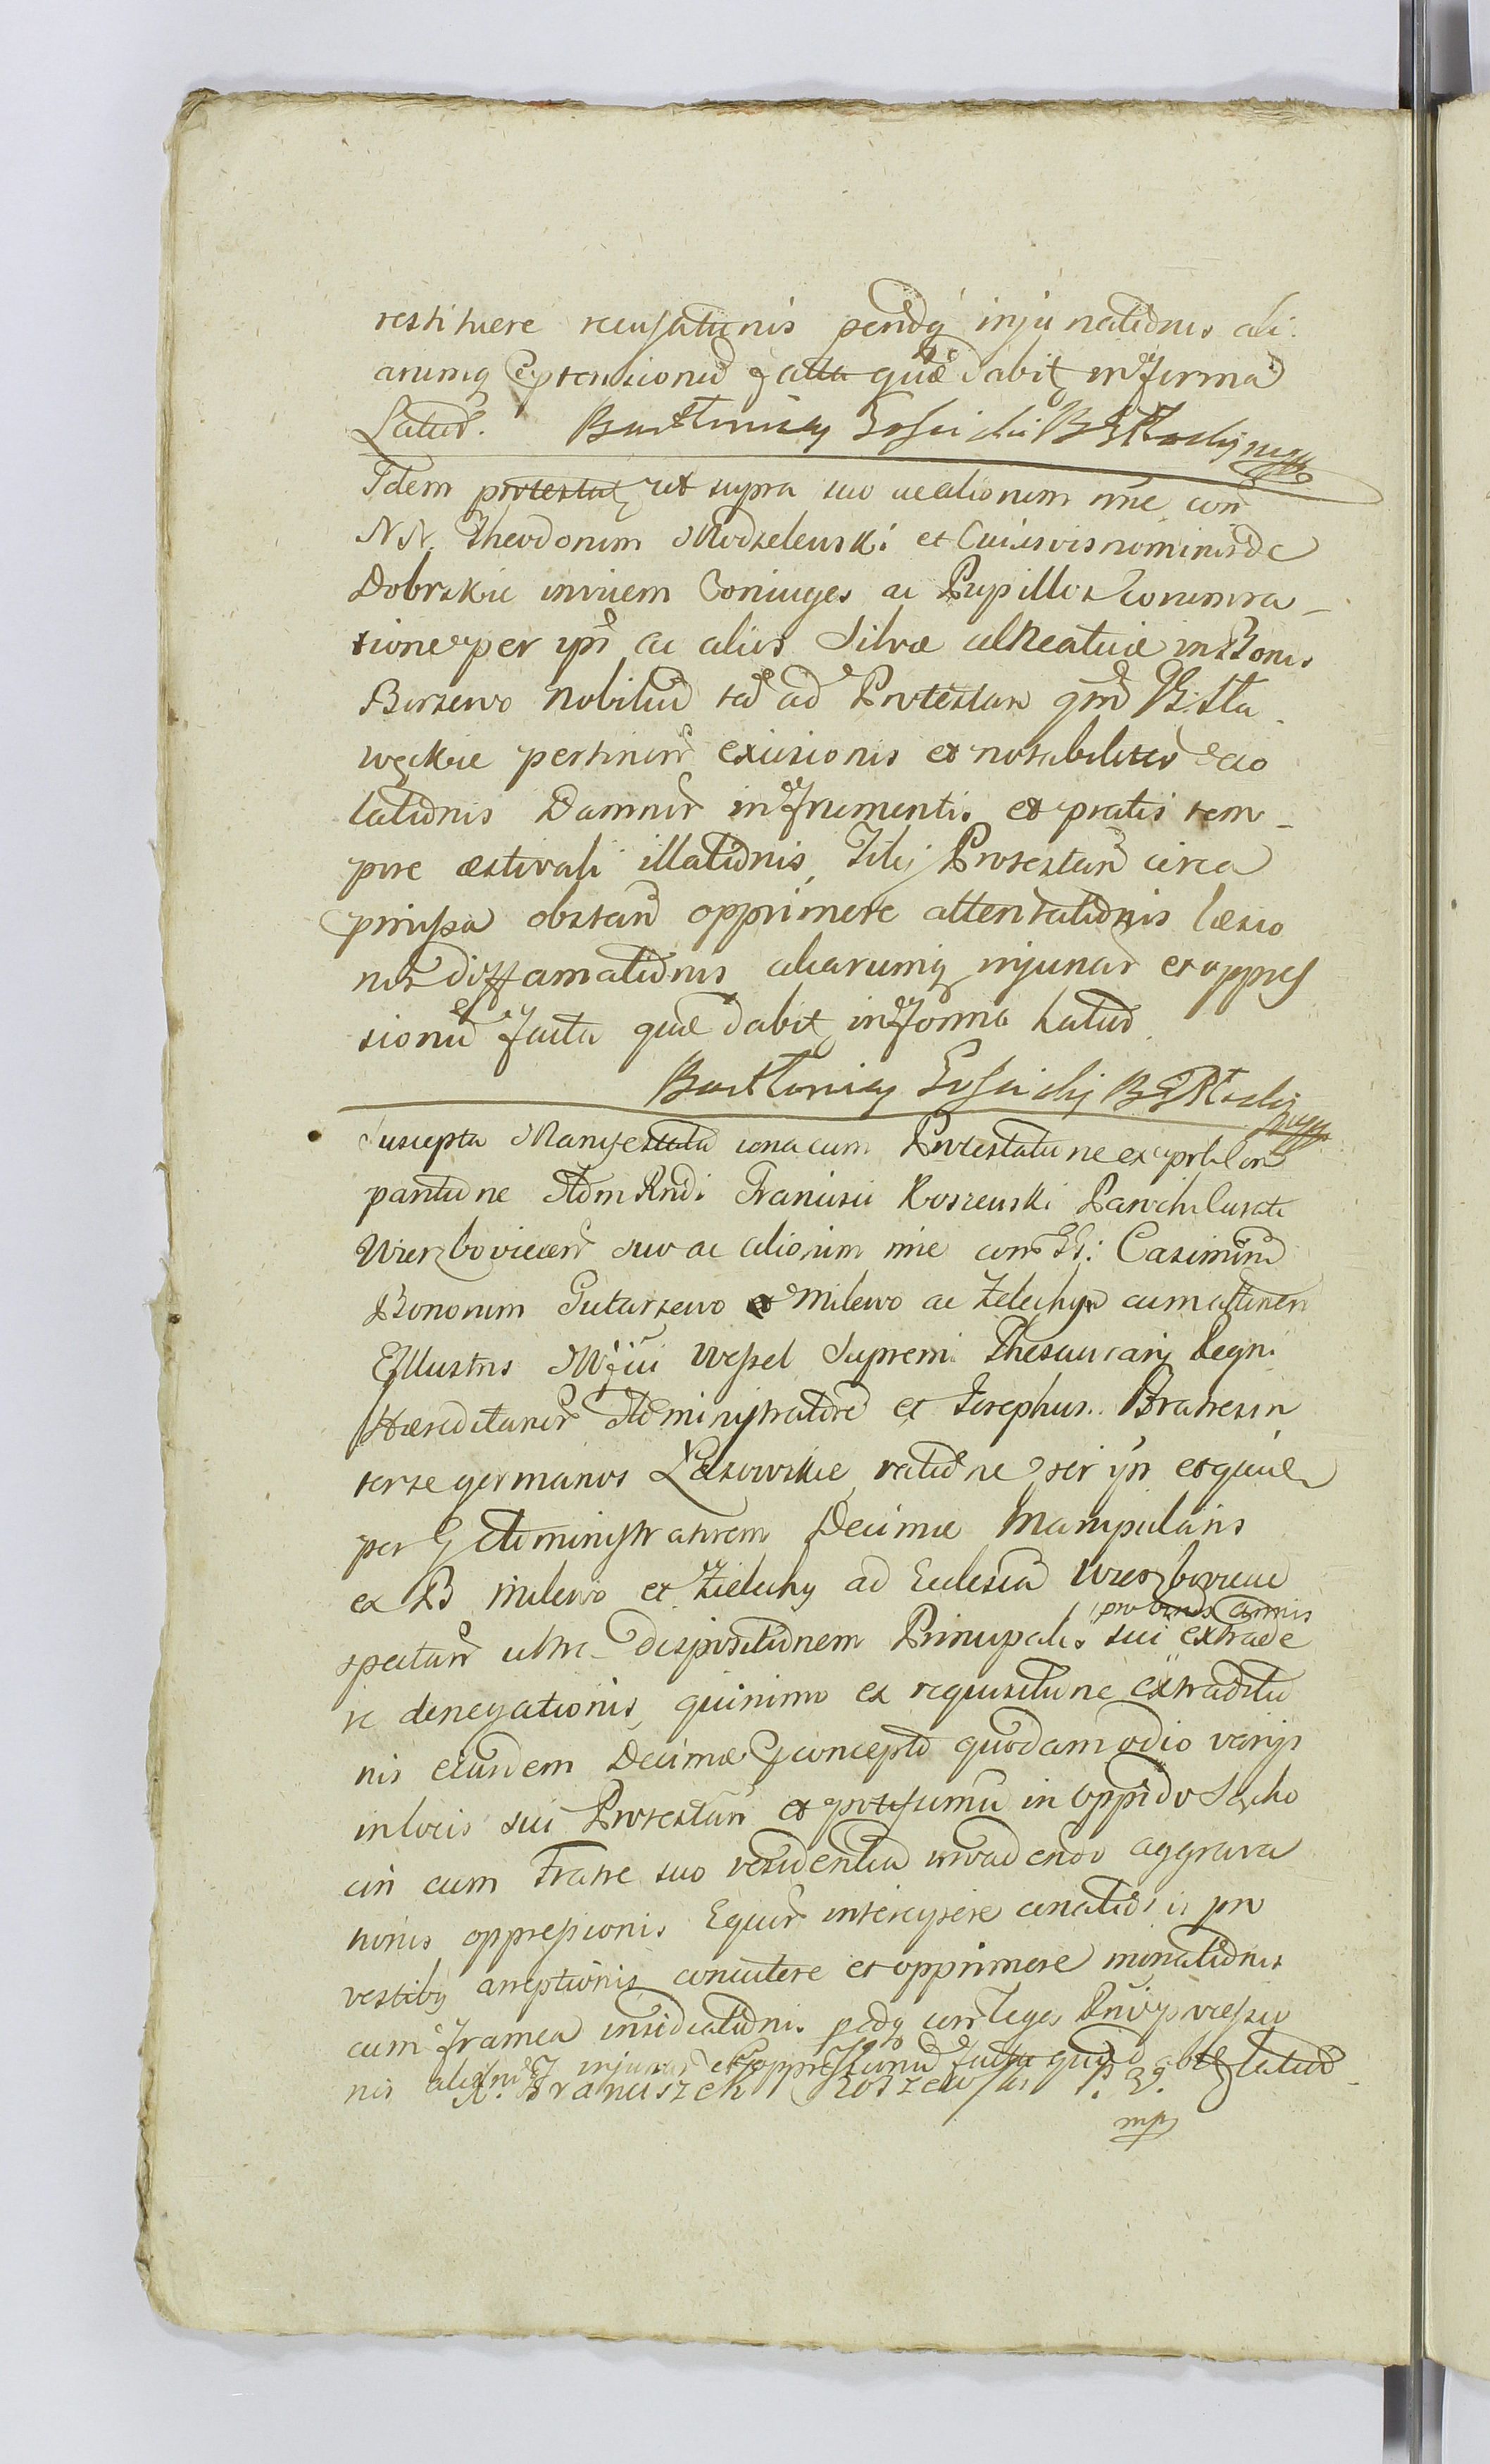 restituere recusationis pendq injuriationis ali
arumq Eptensionu facta quæ dabit in forma
Latius. Bartlomiey Gosicki
Idem protestat ut supra suo ac aliorum nne con
NN. Theodorum Modzelewski et Cuiusvis nominis de
Dobrskie invicem Coniuges ac Pupillos eorum ra
tione per ips ac alios Silvæ alneatiæ in Bonis
Borzewo Nobiliu sed ad Protestan
pertinen excisionis et notabiliter
lationis Damnor in frumentis et pratis tem
pore æstivali illationis, Filij Protestan circa
præmissa obstan opprimere attentationis læsio
nis diffamationis aliarumq injuriar et oppres
sionu facta quæ dabit in forma latius
Bartlomiey Gosicki
Suscepta Manifestata una cum Protestatione ex
Adm Rndi Francisci Roszewski Parochi Curati
Wierzbovicen suo ac aliorum nne con GG: Casimiru
Bonorum Gutarzewo et Milewo ac Zelechy cum attinen
Illustris Mfici Wessel Supremi Thesaurarij Regni
Hæreditarior Administratore et Josephu Fratres in
ter se germanos Lasowskie ratione per ips et quide
per G Administratorem Decimæ Manipularis
ex B Milewo et Zielechy ad Ecclesia Wierzbovicen
pro binis annis
spectan ultra dispositionem Principalis sui extrade
re denegationis, quinimo ex requisitione extraditio
nis eiusdem Decimæ concepto quodam odio varijs
in locis sui Protestan et potissimu in oppido Socho
cin cum Fratre suo residentia invadendo aggrava
tionis oppressionis Equor intercipere conationis pro
vestibq arreptionis concutere et opprimere minationis
cum framea insidiationis pedq con Leges
nis aliar injuriar et oppressionu facta quæ dabit latius
X. Franciszek Roszewski P. W.
mp